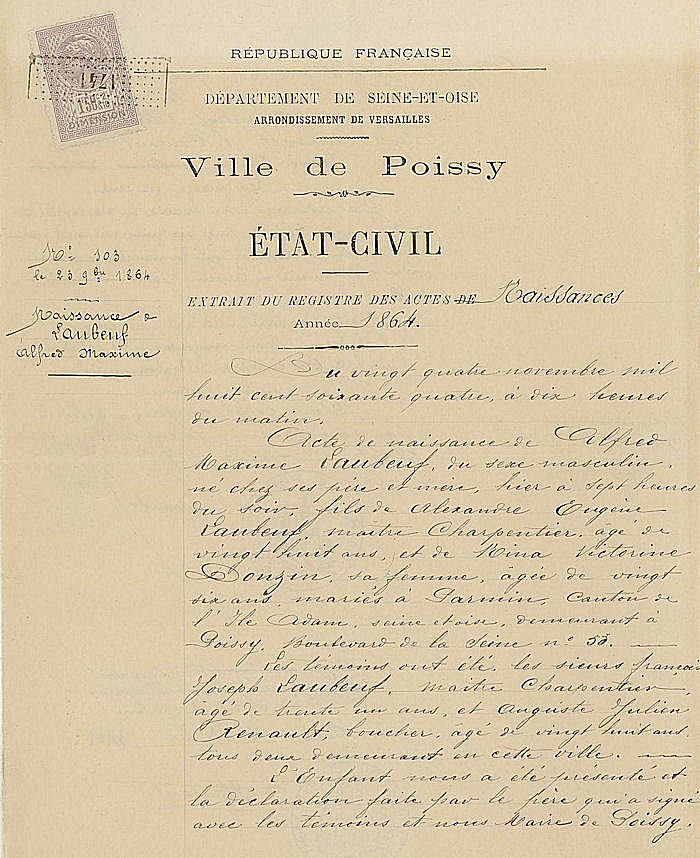 1741
1 50c
DIMENSION
RÉPUBLIQUE FRANÇAISE
DÉPARTEMENT DE SEINE-ET-OISE
ARRONDISSEMENT DE VERSAILLES
Ville de Poissy
ÉTAT-CIVIL
N° 103
le 23 9bre 1864
Naissance de
Laubeuf
Alfred Maxime
EXTRAIT DU REGISTRE DES ACTES DE Naissances
Année 1864.
Du vingt quatre novembre mil
huit cent soixante quatre, à dix heures
du matin.
Acte de naissance de Alfred
Maxime Laubeuf, du sexe masculin,
né chez ses père et mère, hier à sept heures
du soir, fils de Alexandre Eugène
Laubeuf, maître Charpentier, âgé de
vingt huit ans, et de Nina Victorine
Donzin, sa femme, âgée de vingt
six ans, mariés à Parmin, Canton de
l'Ile Adam, seine et oise, demeurant à
Poissy, Boulevard de la Seine n° 55.
Les témoins ont été, les sieurs françois
Joseph Laubeuf, maître Charpentier,
âgé de trente un ans, et Auguste Julien
Renault, boucher, âgé de vingt huit ans,
tous deux demeurant en cette ville.
L'Enfant nous a été présenté et
la déclaration faite par le père qui a signé
avec les témoins et nous Maire de Poissy.